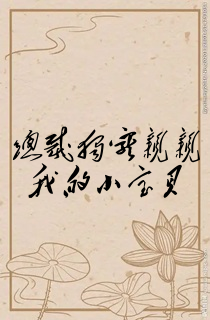 總裁獨寵親親
我的小宝貝